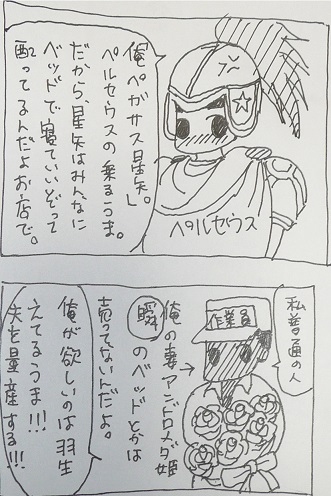 俺ペガサス星矢。
ペルセウスの乗るうま。
だから、星矢はみんなに
ベッドで寝ていいぞって
配ってるんだよお店で。
ペルセウス
私普通の人
作業員
俺の妻アンドロメダ姫
瞬のベッドとかは
売ってないんだよ。
俺が欲しいのは羽生
えてるうま!!!
夫を量産する!!!